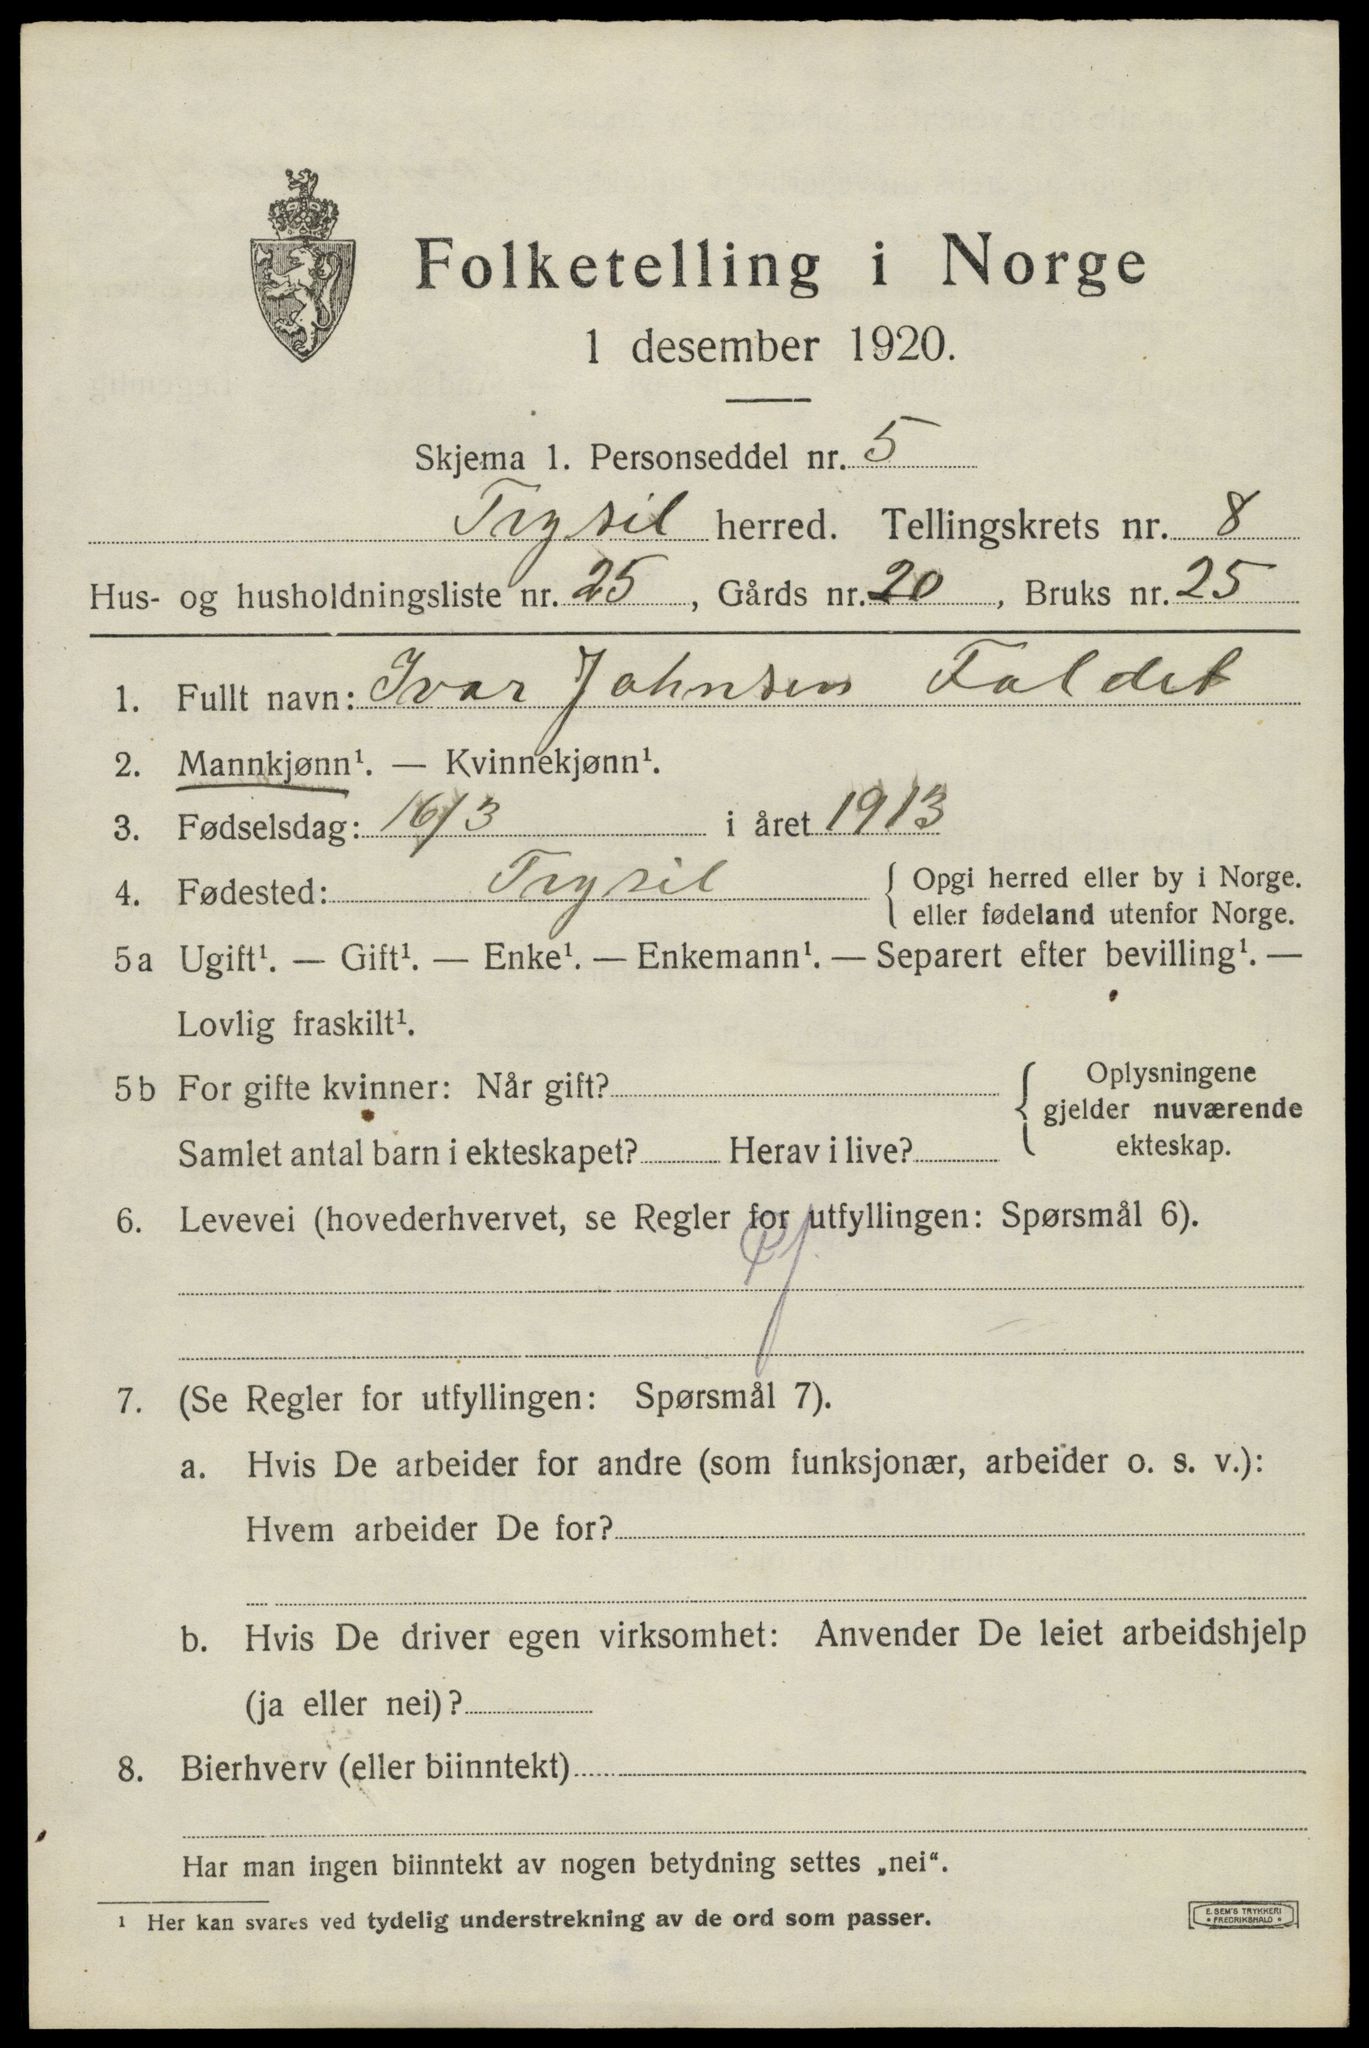 Folketelling i Norge
1 desember 1920.
Skjema 1. Personseddel nr. 5
Trysil herred. Tellingskrets nr. 8
Hus- og husholdningsliste nr. 25, Gårds nr. 20, Bruks nr. 25
1. Fullt navn: Ivar Johnsen Faldet
2. Mannkjønn¹. — Kvinnekjønn¹.
3. Fødselsdag: 16/3 i året 1913
4. Fødested: Trysil { Opgi herred eller by i Norge.
eller fødeland utenfor Norge.
5a Ugift¹. — Gift¹. — Enke¹. — Enkemann¹. — Separert efter bevilling¹. —
Lovlig fraskilt¹.
5b For gifte kvinner: Når gift? { Oplysningene
gjelder nuværende
ekteskap.
Samlet antal barn i ekteskapet? Herav i live?
6. Levevei (hovederhvervet, se Regler for utfyllingen: Spørsmål 6).
7. (Se Regler for utfyllingen: Spørsmål 7).
a. Hvis De arbeider for andre (som funksjonær, arbeider o. s. v.):
Hvem arbeider De for?
b. Hvis De driver egen virksomhet: Anvender De leiet arbeidshjelp
(ja eller nei)?
8. Bierhverv (eller biinntekt)
Har man ingen biinntekt av nogen betydning settes „nei“.
¹ Her kan svares ved tydelig understrekning av de ord som passer.
E. SEM'S TRYKKERI
• FREDRIKSHALD •